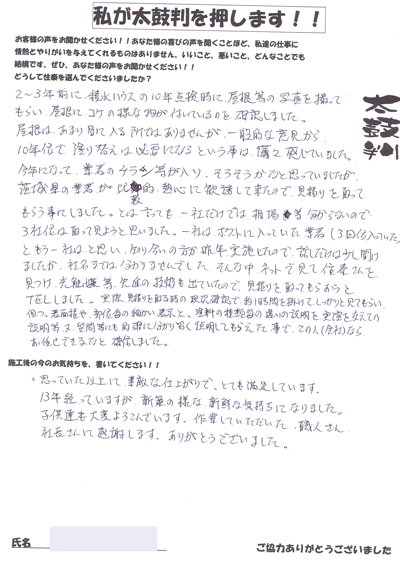 私が太鼓判を押します！！
お客様の声をお聞かせください！！あなた様の喜びの声を聞くことほど、私達の仕事に
情熱とやりがいを与えてくれるものはありません。いいこと、悪いこと、どんなことでも
結構です。ぜひ、あなた様の声をお聞かせください！！
どうして住泰を選んでくださいましたか？
太鼓判
2～3年前に、積水ハウスの10年点検時に屋根等の写真を撮って
もらい、屋根にコケの様な物が付いているのを確認しました。
屋根は、あまり目に入る所ではありませんが、一般的な意見から、
10年位で、塗り替えは必要になるという事は、薄々感じていました。
今年になって、業者のチラシ等が入り、そろそろかなと思っていましたが、
業者が比較的、熱心に勧誘して来たので、見積りを取って
もらう事にしました。とは言っても、一社だけでは、相場等分からないので
3社位は取って見ようと思いました。一社は、ポストに入っていた業者(3回位入っていた)
ともう一社はと思い、知り合いの方が昨年実施したので、話しだけは少し聞け
ましたが、社名までは分かりませんでした。そんな中、ネットで見て住泰さんを
見つけ、光触媒等、
の技術も出ていたので、見積りを取ってもらおうと
TELしました。実際、見積りを取る時の現況確認で、約1時間を掛けて、しっかりと見てもらい、
但つ、
の細かい表示と、塗料の種類毎の違いの説明を実際を交えての
説明等、又、質問等にも
に分かり易く説明してもらえた事で、この人(会社)なら
お任せできるなと確信しました。
施工後の今のお気持ちを、書いてください！！
。思っていた以上に、素敵な仕上がりで、とても満足しています。
13年経っていますが、新築の様な新鮮な気持ちになりました。
子供達も大変よろこんでいます。作業していただいた、職人さん、
社長さんに感謝します。ありがとうございました。
氏名
ご協力ありがとうございました